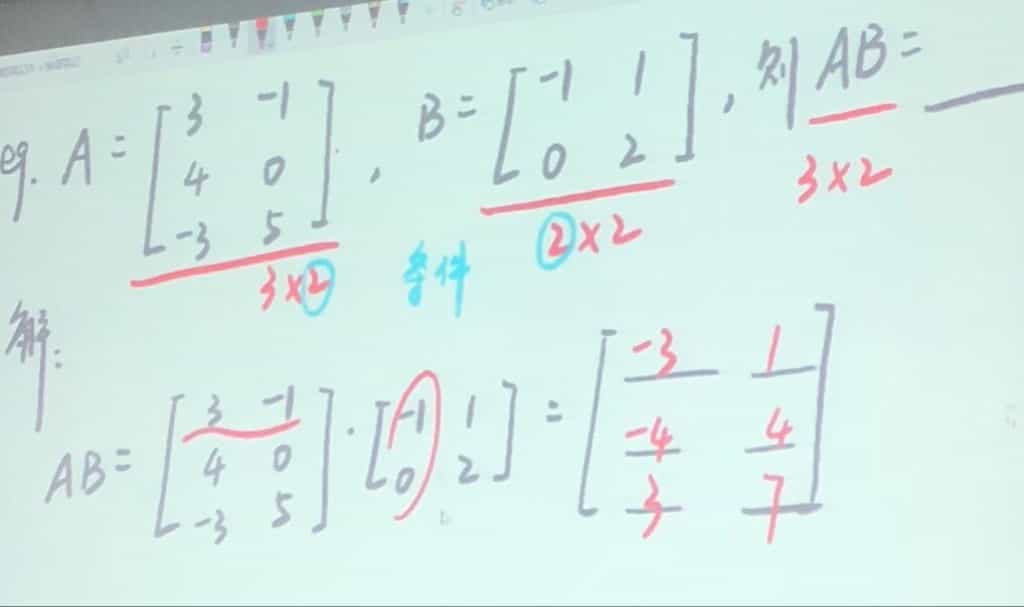 eg. A = [3 -1; 4 0; -3 5], B = [-1 1; 0 2], 则 AB = ____
3×2 条件 2×2 3×2
解:
AB = [3 -1; 4 0; -3 5] · [-1 1; 0 2] = [-3 1; -4 4; 3 7]